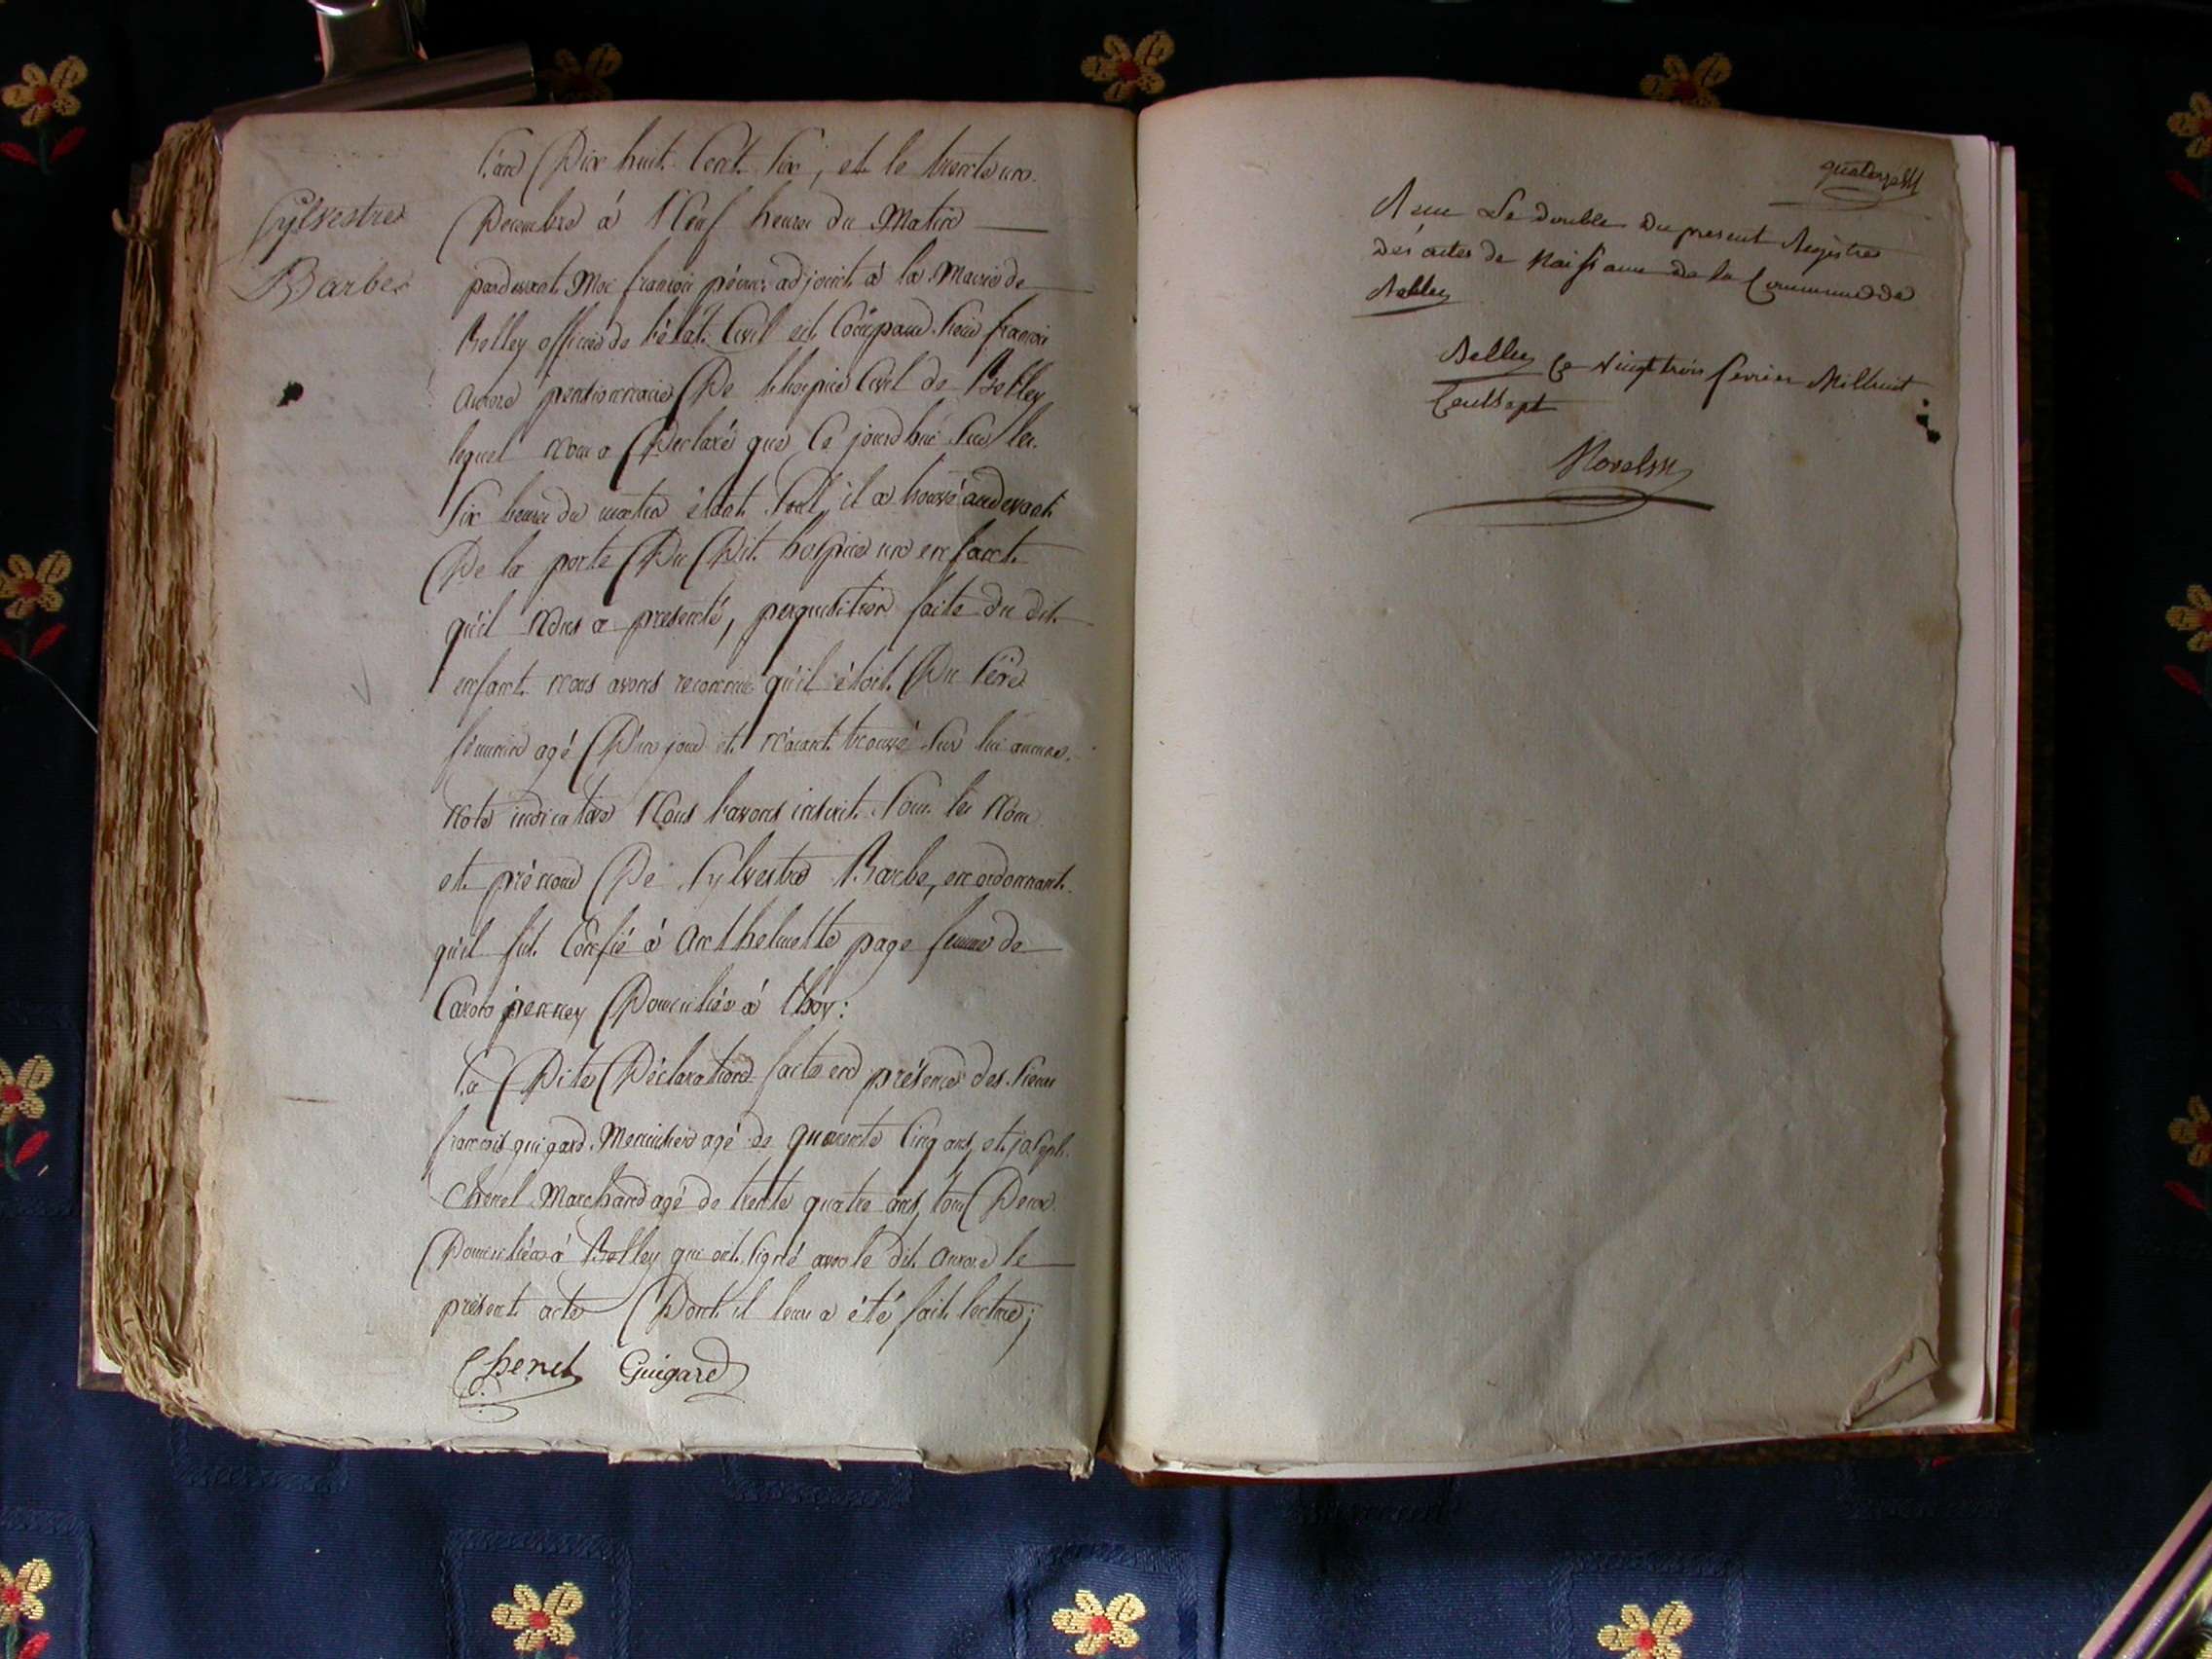 Sylvestre
Barbe
L'an Dix huit Cent Six, et le trente un
Decembre à Neuf heures du Matin
pardevant Moi françois adjoint à la Mairie de
Belley officier de l'état Civil est Comparu Sieur françois
pensionnaire De l'hospice Civil de Belley
lequel nous a Déclaré que Ce jourd'hui Sur les
Six heures du matin étant Seul, il a trouvé audevant
De la porte Du Dit hospice un enfant
qu'il nous a presenté, perquisition faite du dit
enfant nous avons reconnu qu'il étoit Du Sexe
féminin agé D'un jour et n'aiant trouvé Sur lui aucune
note indicative Nous l'avons inscrit Sous les Nom
et prénom De Sylvestre Barbe, en ordonnant
qu'il fut Confié à Anthelmette page femme de
penney Domiciliée à
La Dite Déclaration faite en présence des Sieurs
francois guigard Menuisier agé de quarente Cinq ans, et joseph
Chenel Marchand agé de trente quatre ans, tous Deux
Domiciliés à Belley qui ont Signé avec le dit le
présent acte Dont il leur a été fait lecture;
Chenel Guigard
Le double du present Registre
des actes de Naissance de la Commune de
Belley
Belley Ce vingt trois fevrier Mil huit
Cent Sept